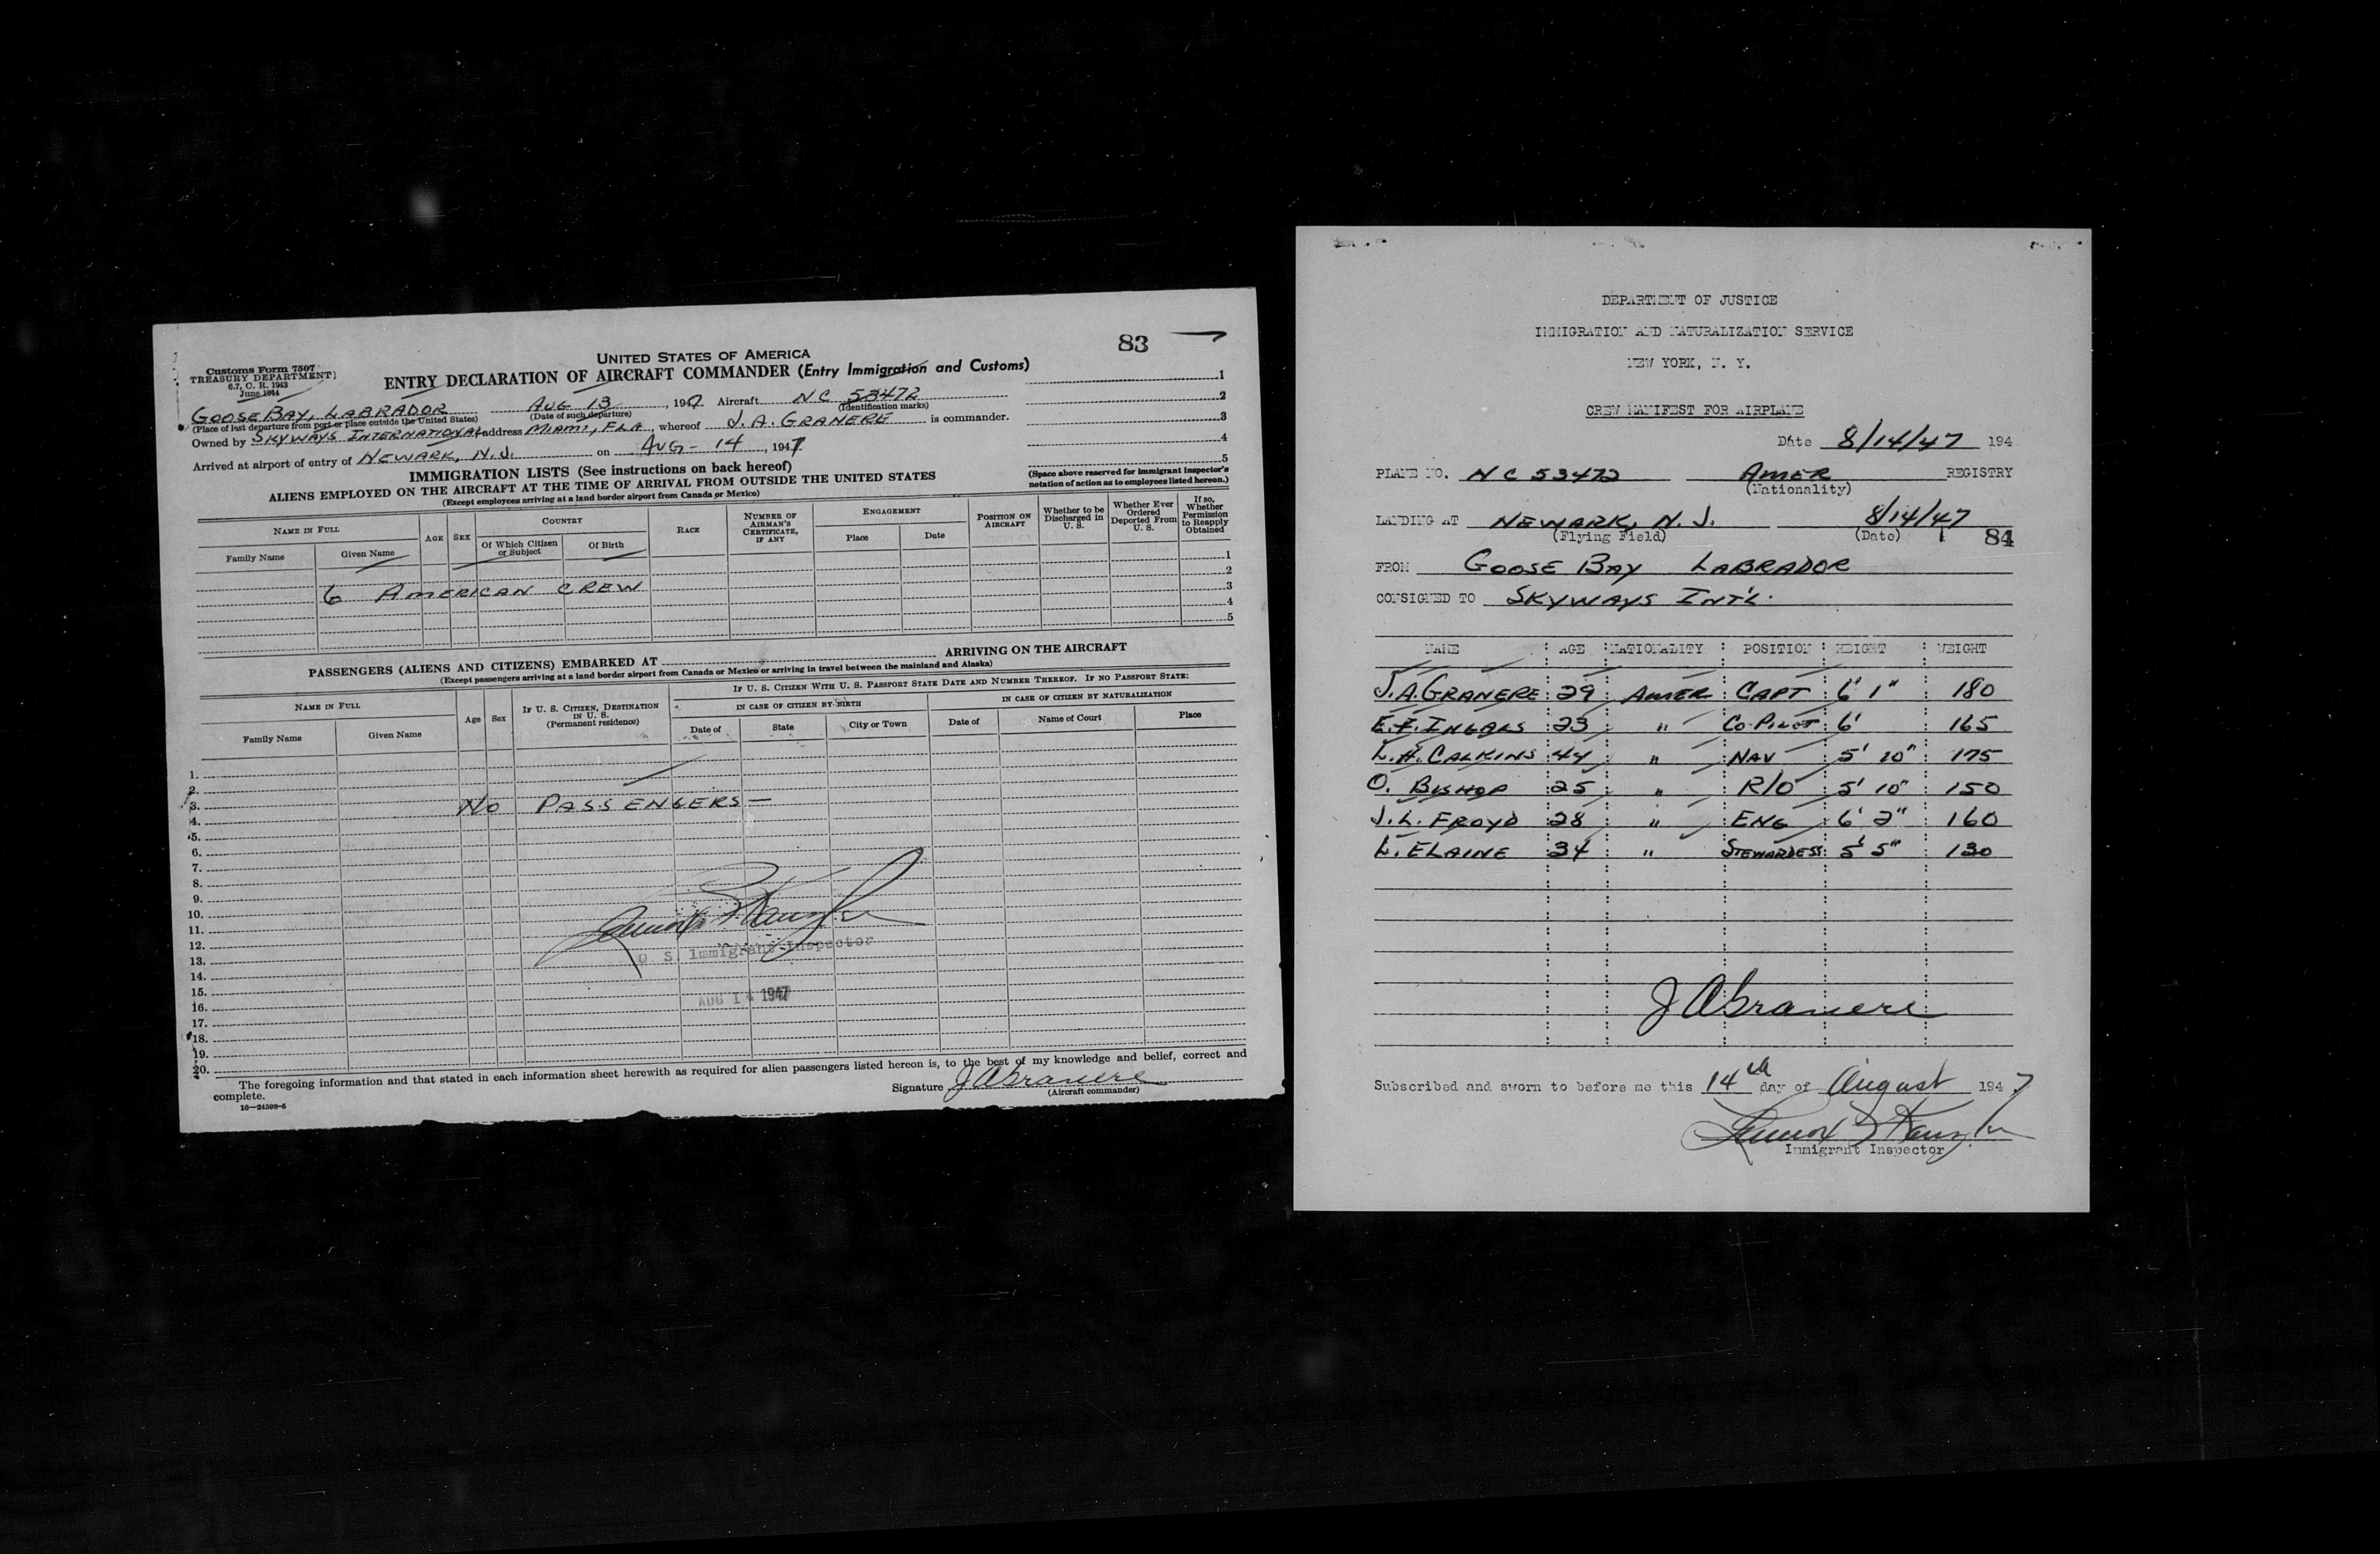 83
Customs Form 7507
TREASURY DEPARTMENT
6.7, C. R. 1943
June 1944
UNITED STATES OF AMERICA
ENTRY DECLARATION OF AIRCRAFT COMMANDER (Entry Immigration and Customs)
GOOSE BAY, LABRADOR AUG 13, 1947 Aircraft NC 53472
(Place of last departure from port or place outside the United States) (Date of such departure) (Identification marks)
Owned by SKYWAYS INTERNATIONAL address MIAMI, FLA, whereof J. A. GRANERE is commander.
Arrived at airport of entry of NEWARK, N.J. on AUG - 14, 1947
1
2
3
4
5
(Space above reserved for immigrant inspector's notation of action as to employees listed hereon.)
IMMIGRATION LISTS (See instructions on back hereof)
ALIENS EMPLOYED ON THE AIRCRAFT AT THE TIME OF ARRIVAL FROM OUTSIDE THE UNITED STATES
(Except employees arriving at a land border airport from Canada or Mexico)
NAME IN FULL AGE SEX COUNTRY RACE NUMBER OF AIRMAN'S CERTIFICATE, IF ANY ENGAGEMENT POSITION ON AIRCRAFT Whether to be Discharged in U. S. Whether Ever Ordered Deported From U. S. If so, Whether Permission to Reapply Obtained
Family Name Given Name Of Which Citizen or Subject Of Birth Place Date
1
2
6 AMERICAN CREW 3
4
5
PASSENGERS (ALIENS AND CITIZENS) EMBARKED AT ARRIVING ON THE AIRCRAFT
(Except passengers arriving at a land border airport from Canada or Mexico or arriving in travel between the mainland and Alaska)
NAME IN FULL Age Sex IF U. S. CITIZEN, DESTINATION IN U. S. (Permanent residence) IF U. S. CITIZEN WITH U. S. PASSPORT STATE DATE AND NUMBER THEREOF. IF NO PASSPORT STATE:
IN CASE OF CITIZEN BY BIRTH IN CASE OF CITIZEN BY NATURALIZATION
Family Name Given Name Date of State City or Town Date of Name of Court Place
1.
2.
3. NO PASSENGERS—
4.
5.
6.
7.
8.
9.
10.
11.
12.
13. U. S. Immigrant Inspector
14.
15. AUG 14 1947
16.
17.
18.
19.
20.
The foregoing information and that stated in each information sheet herewith as required for alien passengers listed hereon is, to the best of my knowledge and belief, correct and
complete.
Signature J A Granere
(Aircraft commander)
16—24598-5
DEPARTMENT OF JUSTICE
IMMIGRATION AND NATURALIZATION SERVICE
NEW YORK, N. Y.
CREW MANIFEST FOR AIRPLANE
Date 8/14/47 194
PLANE NO. NC 53472 AMER REGISTRY
(Nationality)
LANDING AT NEWARK, N. J. 8/14/47
(Flying Field) (Date) 84
FROM GOOSE BAY LABRADOR
CONSIGNED TO SKYWAYS INT'L.
NAME AGE NATIONALITY POSITION HEIGHT WEIGHT
J.A. GRANERE 29 AMER CAPT 6' 1" 180
E.F. INGALS 23 " CO-PILOT 6' 165
L.H. CALKINS 44 " NAV 5' 10" 175
O. BISHOP 25 " R/O 5' 10" 150
J.L. FROYD 28 " ENG 6' 2" 160
L. ELAINE 34 " STEWARDESS 5' 5" 130
J A Granere
Subscribed and sworn to before me this 14th day of August 1947
Immigrant Inspector